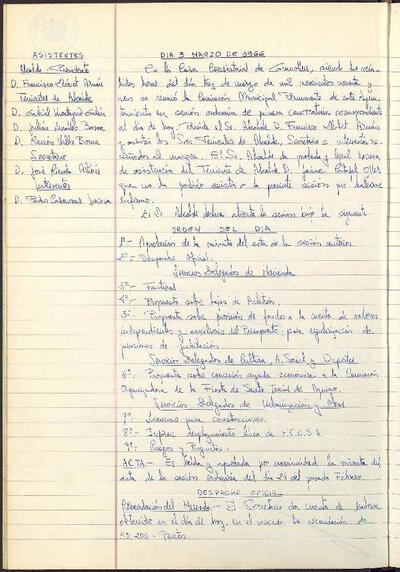 ASISTENTES
Alcalde Presidente
D. Francisco Llobet
Tenientes de Alcalde
D.
D.
D. Ramón Vallés
Secretario
D. José
Interventor
D. Pedro
DIA 3 MARZO DE 1966
En la Casa Consistorial de Granollers, siendo las
horas del día tres de marzo de mil novecientos sesenta y
seis se reunió la Comisión Municipal Permanente de este
en sesión ordinaria de primera convocatoria correspondiente
al día de hoy. Preside el Sr. Alcalde D. Francisco Llobet
y asisten los Sres. Tenientes de Alcalde, Secretario e Interventor
al margen. El Sr. Alcalde
de del Teniente de Alcalde D. Jaime
que no ha podido asistir a la presente sesión por
El Sr. Alcalde declara abierta la sesión bajo la siguiente.
ORDEN DEL DIA
1º.- Aprobación de la minuta del acta de la sesión anterior.
2º.- Despacho Oficial.
Servicios Delegados de Hacienda
3º.-
4º.- Propuesta sobre bajas de Arbitrios.
5º.- Propuesta sobre provisión de fondos a la cuenta de valores
independientes y auxiliares del Presupuesto, para regularización de
pensiones de jubilación.
Servicios Delegados de Cultura A. Social y Deportes
6º.- Propuesta sobre concesión ayuda económica a la Comisión
Organizadora de la Fiesta de Santo Tomás de Aquino.
Servicios Delegados de Urbanización y Obras
7º.- Licencias para construcciones.
8º.- desplazamiento línea de
9º.- Ruegos y Preguntas.
ACTA.- Es leída y aprobada por unanimidad la minuta del
acta de la sesión ordinaria del día 24 del pasado Febrero.
DESPACHO OFICIAL
Recaudación del Mercado.- El Secretario da cuenta de haberse
obtenido en el día de hoy, en el mercado, la recaudación de
50.200 Pesetas